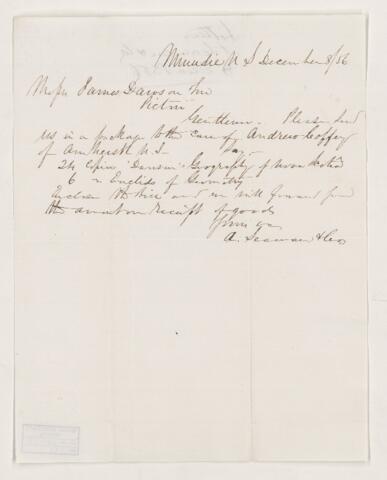 Minudie N S December 8/56
Messrs James Dawson &
Pictou
Gentlemen. Please send
us in a package to the care of Andrew Coffey
of Amherst N.S.
24 copies Dawson's Geography of Nova Scotia
6 " Euclids of Geometry
Enclose the Bill and we will forward you
the amount on Receipt of goods
Yours
A. Seaman & Co